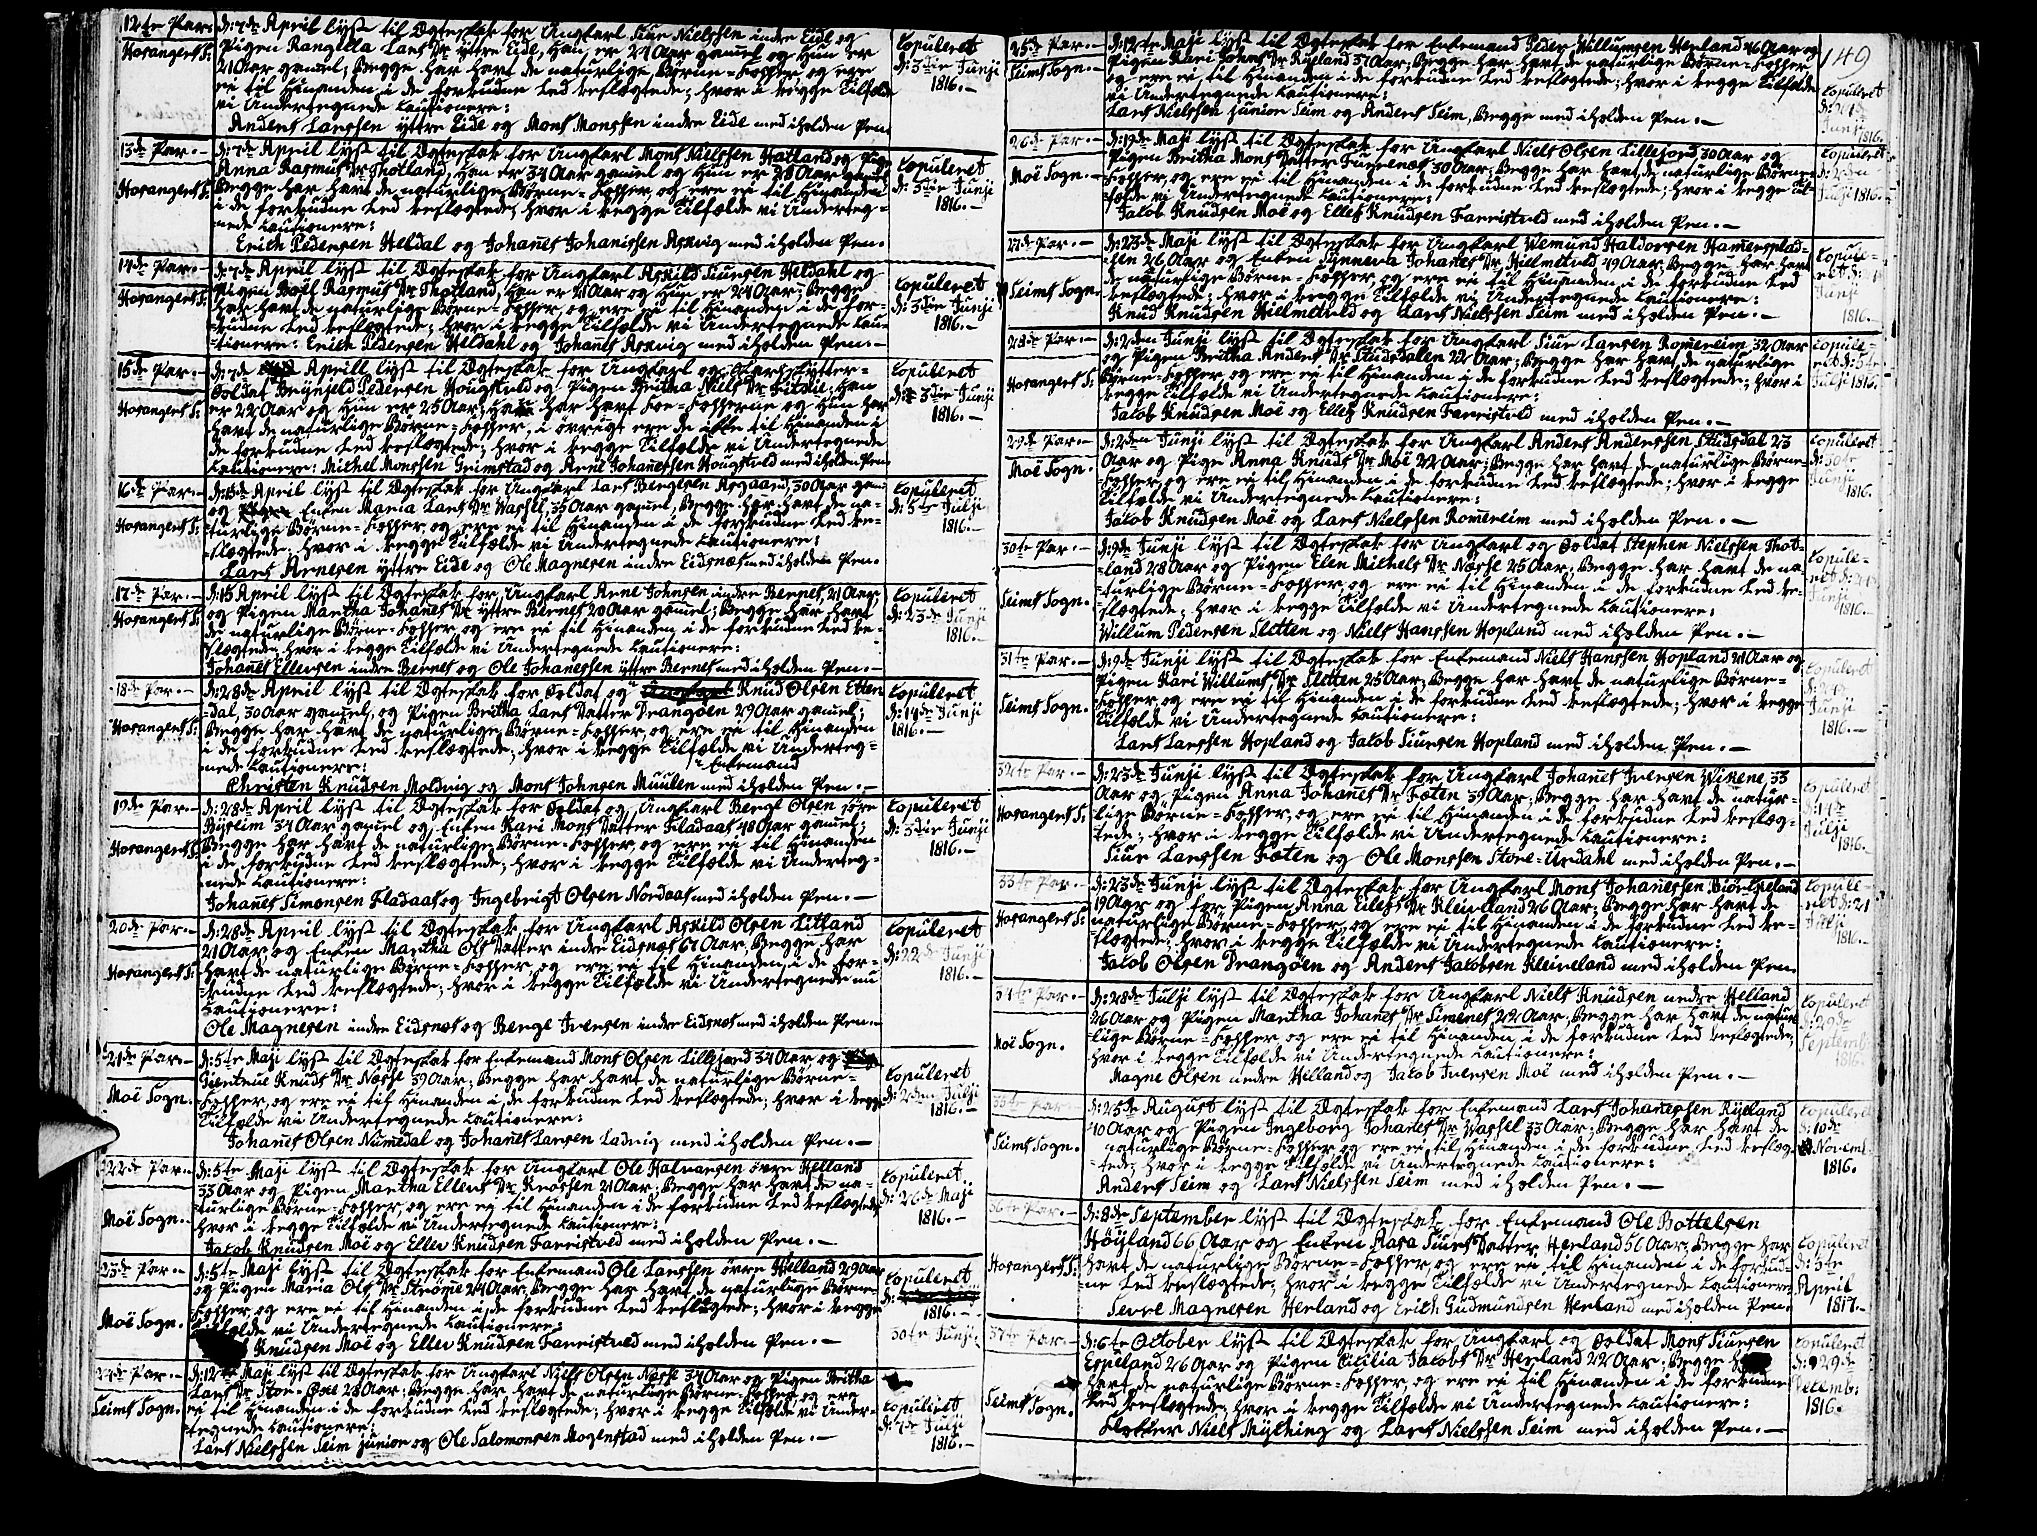 12te Par.
Hosangers S:
d: 7de April lyst til Ægteskab for Ungkarl Siur Nielssen indre Eide og
Pigen Rangilla Lars Dr yttre Eide, Han er 24 Aar gamel og Hun er
21 Aar gamel; Begge har havt de naturlige Børne-Kopper og ere
ei til Hinanden i de forbudne Led beslægtede; hvor i begge Tilfælde
vi Undertegnede Cautionere:
Anders Larssen yttre Eide og Mons Monssen indre Eide med iholden Pen
Copuleret
d: 3die Junji
1816.-
13de Par.-
Hosangers S:
d: 7de April lyst til Ægteskab for Ungkarl Mons Nielssen Hatland og Pigen
Anna Rasmus Dr Thotland, Han er 34 Aar gamel og Hun er 28 Aar gamel
Begge har havt de naturlige Børne-Kopper, og ere ei til Hinanden
i de forbudne Led beslægtede; hvor i begge Tilfælde vi Underteg-
nede Cautionere:
Erich Pedersen Heldal og Johanes Johanissen Askvig med iholden Pen.
Copuleret
d: 3die Junji
1816.-
14de Par.-
Hosangers S:
d: 7de April lyst til Ægteskab for Ungkarl Askild Siursen Heldahl og
Pigen Boel Rasmus Dr Thotland, Han er 21 Aar og Hun er 24 Aar; Begge
har havt de naturlige Børne-Kopper, og ere ei til Hinanden i de for-
budne Led beslægtede; hvor i begge Tilfælde vi Undertegnede Cau-
tionere: Erich Pedersen Heldahl og Johanes Askvig med iholden Pen:-
Copuleret
d: 3die Junji
1816.-
15de Par.-
Hosangers S:
d: 7de April lyst til Ægteskab for Ungkarl og Skytter-
Soldat Brynjeld Pedersen Hougstvld og Pigen Britha Niels Dr Eitdie; Han
er 22 Aar og Hun er 25 Aar; Han har havt Koe-Kopperne og Hun har
havt de naturlige Børne-Kopper, i øvrigt ere de ikke til Hinanden i
de forbudne Led beslægtede; hvor i begge Tilfælde vi Undertegnede
Cautionere: Michel Monssen Grimstad og Arne Johanessen Hougstvld med iholden Pen
Copuleret
d: 3die Junji
1816.-
16de Par.-
Hosangers S:
d: 15de April lyst til Ægteskab for Ungkarl Lars Bergesen Asgaard, 30 Aar gam
og Enken Maria Lars Dr Wassel, 35 Aar gamel, Begge har havt de na-
turlige Børne-Kopper og ere ei til Hinanden i de forbudne Led be-
slægtede; hvor i begge Tilfælde vi Undertegnede Cautionere:
Lars Arnesen yttre Eide og Ole Magnesen indre Eidsnæs med iholden Pen.
Copuleret
d: 5te Julji
1816.-
17de Par.-
Hosangers S:
d: 15 April lyst til Ægteskab for Ungkarl Arne Johnsen indre Bernes, 21 Aar
og Pigen Martha Johanes Dr yttre Bernes 20 Aar gamel; Begge har havt
de naturlige Børne-Kopper og ere ei til Hinanden i de forbudne Led be-
slægtede; hvor i begge Tilfælde vi Undertegnede Cautionere:
Johanes Ellensen indre Bernes og Ole Johanessen yttre Bernes med iholden Pen.-
Copuleret
d: 23de Junji
1816.-
18de Par.-
Hosangers S:
d: 28de April lyst til Ægteskab for Soldat og Ungkarl Knud Olsen Etten
dal, 30 Aar gamel, og Pigen Britha Lars Datter Drangøen 29 Aar gamel;
Begge har havt de naturlige Børne-Kopper, og ere ei til Hinanden
i de forbudne Led beslægtede; hvor i begge Tilfælde vi Underteg-
nede Cautionere: Enkemand
Christen Knudsen Moldvig og Mons Johnsen Muulen med iholden Pen.-
Copuleret
d: 14de Junji
1816.-
19de Par.-
Hosangers S:
d: 28de April lyst til Ægteskab for Soldat og Ungkarl Berge Olsen søre
Byrkim 34 Aar gamel og Enken Kari Mons Datter Fladaas 48 Aar gamel;
Begge har havt de naturlige Børne-Kopper og ere ei til Hinanden
i de forbudne Led beslægtede; hvor i begge Tilfælde vi Underteg-
nede Cautionere:
Johanes Simonsen Fladaas og Ingebrigt Olsen Nordaas med iholden Pen.-
Copuleret
d: 3die Junji
1816.-
20de Par.-
Hosangers S:
d: 28de April lyst til Ægteskab for Ungkarl Askild Olsen Litland
21 Aar og Enken Martha Ols Datter indre Eidsnæs 67 Aar, Begge har
havt de naturlige Børne-Kopper, og ere ei til Hinanden i de for-
budne Led beslægtede; hvor i begge Tilfælde vi Undertegnede nu
Cautionere:
Ole Magnesen indre Eidsnæs og Berge Iversen indre Eidsnæs med iholden Pen.-
Copuleret
d: 22de Junji
1816.-
21de Par.-
Moë Sogn.
d: 5te Maji lyst til Ægteskab for Enkemand Mons Olsen Lillejord 34 Aar og
Giertrue Knuds Dr Næsse 39 Aar; Begge har havt de naturlige Børne-
Kopper, og ere ei til Hinanden i de forbudne Led beslægtede; hvor i begge
Tilfælde vi Undertegnede Cautionere:
Johanes Olsen Numedal og Johanes Larsen Ladvig med iholden Pen.-
Copuleret
d: 2den Julji
1816.-
22de Par.-
Moë Sogn.
d: 5te Maji lyst til Ægteskab for Ungkarl Ole Halvarsen øvre Helland
33 Aar og Pigen Martha Ellens Dr Knossen 21 Aar; Begge har havt de na-
turlige Børne-Kopper, og ere ei til Hinanden i de forbudne Led beslægtede
hvor i begge Tilfælde vi Undertegnede Cautionere:
Jacob Knudsen Moë og Ellev Knudsen Farristvld med iholden Pen.-
Copuleret
d: 26de Maji
1816.-
23de Par.-
Moë Sogn.
d: 5te Maji lyst til Ægteskab for Enkemand Ole Larssen øvre Helland 29 Aar
og Pigen Maria Ols Dr Strømme 24 Aar, Begge har havt de naturlige Børne-
Kopper, og ere ei til Hinanden i de forbudne Led beslægtede; hvor i begge
Tilfælde vi Undertegnede Cautionere:
Knudsen Moë og Ellev Knudsen Farristvld med iholden Pen.-
Copuleret
d:
1816.-
30te Junji
24de Par.-
Seims Sogn.
d: 12te Maji lyst til Ægteskab for Ungkarl Niels Olsen Næsse 34 Aar og Pigen Britha
Lars Dr Store-Oxe 28 Aar; Begge har havt de naturlige Børne-Kopper, og ere
ei til Hinanden i de forbudne Led beslægtede; hvor i begge Tilfælde vi Under-
tegnede Cautionere:
Lars Nielssen Seim junior og Ole Salomonsen Mogenstad med iholden Pen.-
Copuleret
d: 7de Julji
1816.-
149
25de Par.-
Seims Sogn.
d: 12te Maji lyst til Ægteskab for Enkemand Peder Willumsen Herland 46 Aar og
Pigen Kari Johns Dr Ryeland 37 Aar; Begge har havt de naturlige Børne-Kopper
og ere ei til Hinanden i de forbudne Led beslægtede; hvor i begge Tilfælde
vi Undertegnede Cautionere:
Lars Nielssen junior Seim og Anders Seim, Begge med iholden Pen.-
Copuleret
d: 24de
Junji
1816.
26de Par.-
Moë Sogn.
d: 19de Maji lyst til Ægteskab for Ungkarl Niels Olsen Lillejord 30 Aar og
Pigen Britha Mons Datter Furrenes 30 Aar; Begge har havt de naturlige Børne-
Kopper, og ere ei til Hinanden i de forbudne Led beslægtede; hvor i begge Til-
fælde vi Undertegnede Cautionere:
Jacob Knudsen Moë og Ellef Knudsen Farristvld med iholden Pen.-
Copuleret
d: 2den
Julji 1816.-
27de Par.-
Seims Sogn.
d: 23de Maji lyst til Ægteskab for Ungkarl Wemund Haldorsen Hamersplad-
sen 26 Aar og Enken Synneva Johanes Dr Hielmtvld 49 Aar; Begge har havt
de naturlige Børne-Kopper, og ere ei til Hinanden i de forbudne Led
beslægtede; hvor i begge Tilfælde vi Undertegnede Cautionere:
Knud Knudsen Hielmtvld og Lars Nielssen Seim med iholden Pen.-
Copule-
ret d:
Junji
1816.-
28de Par.-
Hosangers S:
d: 2den Junji lyst til Ægteskab for Ungkarl Siur Larsen Romereim 32 Aar
og Pigen Britha Anders Dr Studsdalen 22 Aar; Begge har havt de naturlige
Børne-Kopper, og ere ei til Hinanden i de forbudne Led beslægtede; hvor i
begge Tilfælde vi Undertegnede Cautionere:
Jacob Knudsen Moë og Ellef Knudsen Farristvld med iholden Pen.-
Copule-
ret d: 5te
Julji 1816.
29de Par.-
Moë Sogn.
d: 2den Junji lyst til Ægteskab for Ungkarl Anders Anderssen Studsdal 23
Aar og Pige Anna Knuds Dr Moë 22 Aar; Begge har havt de naturlige Børne-
Kopper, og ere ei til Hinanden i de forbudne Led beslægtede; hvor i begge
Tilfælde vi Undertegnede Cautionere:
Jacob Knudsen Moë og Lars Nielssen Romereim med iholden Pen.-
Copuleret
d: 30te
Junji
1816.
30te Par.-
Seims Sogn.
d: 9de Junji lyst til Ægteskab for Ungkarl og Soldat Stephen Nielssen Thot-
land 28 Aar og Pigen Elen Michels Dr Næsse 25 Aar; Begge har havt de na-
turlige Børne-Kopper, og ere ei til Hinanden i de forbudne Led be-
slægtede; hvor i begge Tilfælde vi Undertegnede Cautionere:
Willum Pedersen Sletten og Niels Hanssen Hopland med iholden Pen.-
Copule-
ret d: 24de
Junji
1816.-
31te Par.-
Seims Sogn.
d: 9de Junji lyst til Ægteskab for Enkemand Niels Hanssen Hopland 21 Aar og
Pigen Kari Willums Dr Sletten 25 Aar; Begge har havt de naturlige Børne-
Kopper, og ere ei til Hinanden i de forbudne Led beslægtede; hvor i begge
Tilfælde vi Undertegnede Cautionere:
Lars Larssen Hopland og Jacob Siursen Hopland med iholden Pen.-
Copuleret
d: 24de
Junji
1816.-
32te Par.-
Hosangers S:
d: 23de Junji lyst til Ægteskab for Ungkarl Johanes Iversen Wikene, 33
Aar og Pigen Anna Johanes Dr Foten 39 Aar; Begge har havt de natur-
lige Børne-Kopper, og ere ei til Hinanden i de forbudne Led beslæg-
tede; hvor i begge Tilfælde vi Undertegnede Cautionere:
Siur Larssen Foten og Ole Monssen Store-Urdahl med iholden Pen.-
Copuleret
d: 14de
Julji
1816.-
33te Par.-
Hosangers S:
d: 23de Junji lyst til Ægteskab for Ungkarl Mons Johanessen Hiortheland
19 Aar og for Pigen Anna Eilefs Dr Kleiveland 26 Aar; Begge har havt de
naturlige Børne-Kopper, og ere ei til Hinanden i de forbudne Led be-
slægtede; hvor i begge Tilfælde vi Undertegnede Cautionere:
Jacob Olsen Drangøen og Anders Jacobsen Kleiveland med iholden Pen.
Copule-
ret d: 21
Julji
1816.-
34te Par.-
Moë Sogn.
d: 28de Julji lyst til Ægteskab for Ungkarl Niels Knudsen nedre Helland
26 Aar og Pigen Martha Johanes Dr Simenes 22 Aar, Begge har havt de natur
lige Børne-Kopper og ere ei til Hinanden i de forbudne Led beslægtede;
hvor i begge Tilfælde vi Undertegnede Cautionere:
Magne Olsen nedre Helland og Jacob Iversen Moë med iholden Pen.-
Copuleret
d: 29de
Septemb
1816.-
35te Par.-
Seims Sogn.
d: 25de August lyst til Ægteskab for Enkemand Lars Johanessen Ryeland
40 Aar og Pigen Ingeborg Johanes Dr Wassel 33 Aar; Begge har havt de
naturlige Børne-Kopper og ere ei til Hinanden i de forbudne Led beslæg-
tede; hvor i begge Tilfælde vi Undertegnede Cautionere:
Anders Seim og Lars Nielssen Seim med iholden Pen.-
Copuleret
d: 10de
Novemb
1816.
36te Par.-
Hosangers S:
d: 8de September lyst til Ægteskab for Enkemand Ole Bottelsen
Høyland 66 Aar og Enken Aasa Siurs Datter Herland 56 Aar; Begge har
havt de naturlige Børne-Kopper og ere ei til Hinanden i de forbud-
ne Led beslægtede; hvor i begge Tilfælde vi Undertegnede Cautionere
Sevre Magnesen Herland og Erich Gudmundsen Herland med iholden Pen.
Copuleret
d: 3te
April
1817.-
37te Par.-
Seims Sogn.
d: 6te October lyst til Ægteskab for Ungkarl og Soldat Mons Siursen
Espeland 26 Aar og Pigen Cicilia Jacobs Dr Herland 22 Aar; Begge
havt de naturlige Børne-Kopper, og ere ei til Hinanden i de forbudne
Led beslægtede; hvor i begge Tilfælde vi Undertegnede Cautionere:
Klokker Niels Mykking og Lars Nielssen Seim med iholden Pen.-
Copuleret
d: 29de
Decemb:
1816.